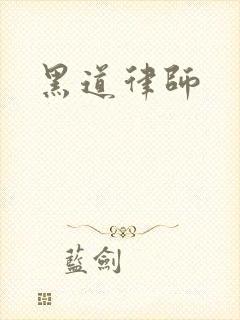 黑道律師
藍劍